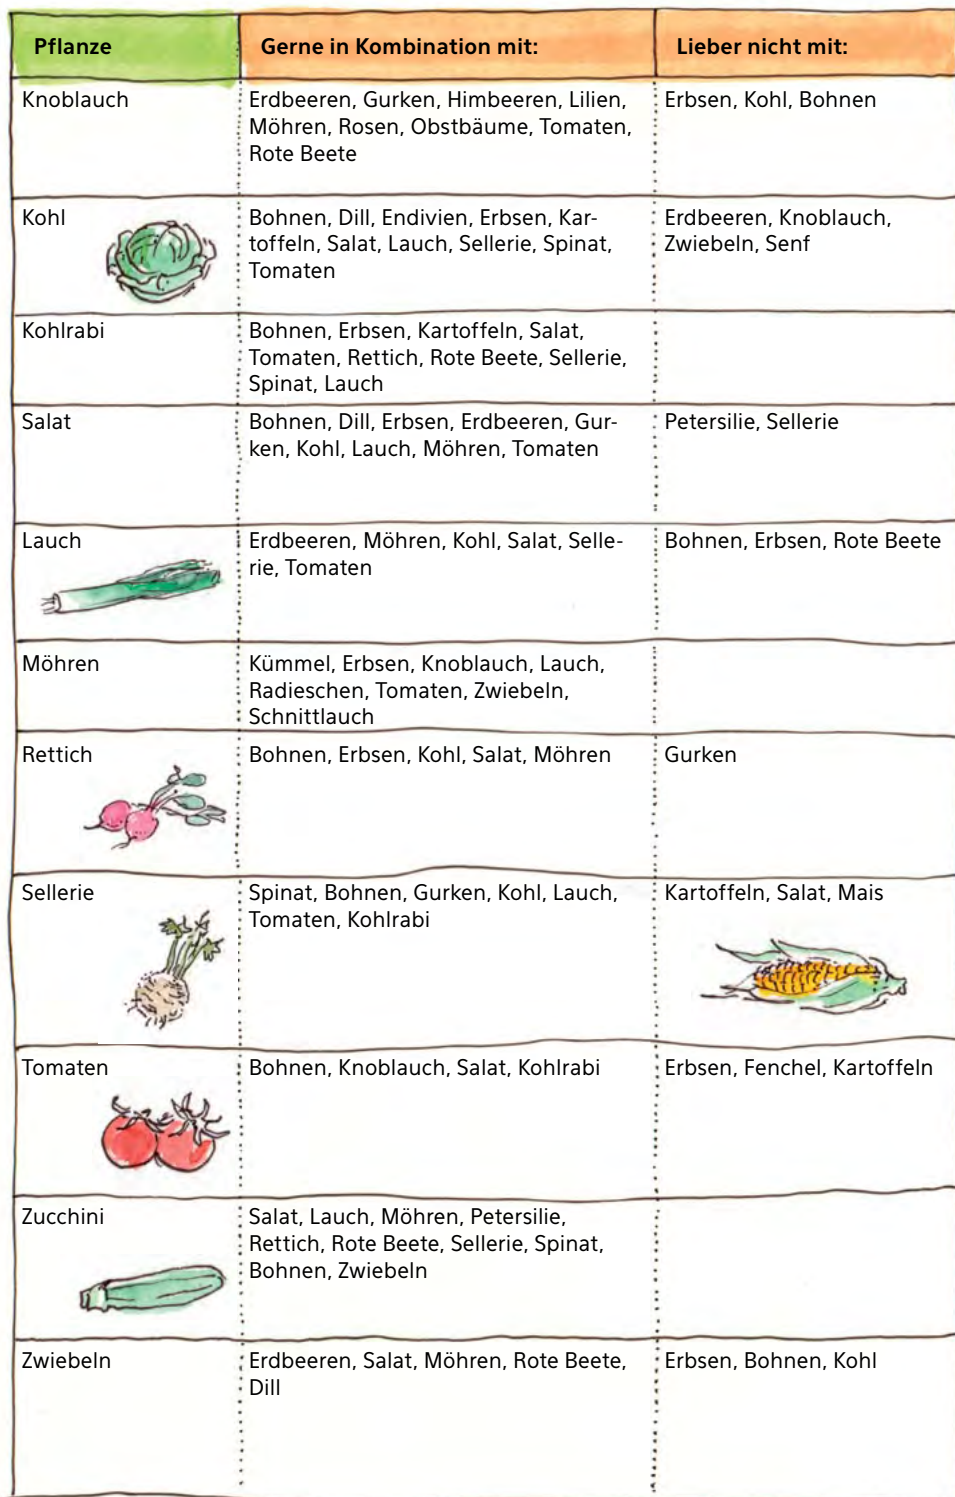 Pflanze
Gerne in Kombination mit:
Lieber nicht mit:
Knoblauch
Erdbeeren, Gurken, Himbeeren, Lilien,
Möhren, Rosen, Obstbäume, Tomaten,
Rote Beete
Erbsen, Kohl, Bohnen
Kohl
Bohnen, Dill, Endivien, Erbsen, Kar-
toffeln, Salat, Lauch, Sellerie, Spinat,
Tomaten
Erdbeeren, Knoblauch,
Zwiebeln, Senf
Kohlrabi
Bohnen, Erbsen, Kartoffeln, Salat,
Tomaten, Rettich, Rote Beete, Sellerie,
Spinat, Lauch
Salat
Bohnen, Dill, Erbsen, Erdbeeren, Gur-
ken, Kohl, Lauch, Möhren, Tomaten
Petersilie, Sellerie
Lauch
Erdbeeren, Möhren, Kohl, Salat, Selle-
rie, Tomaten
Bohnen, Erbsen, Rote Beete
Möhren
Kümmel, Erbsen, Knoblauch, Lauch,
Radieschen, Tomaten, Zwiebeln,
Schnittlauch
Rettich
Bohnen, Erbsen, Kohl, Salat, Möhren
Gurken
Sellerie
Spinat, Bohnen, Gurken, Kohl, Lauch,
Tomaten, Kohlrabi
Kartoffeln, Salat, Mais
Tomaten
Bohnen, Knoblauch, Salat, Kohlrabi
Erbsen, Fenchel, Kartoffeln
Zucchini
Salat, Lauch, Möhren, Petersilie,
Rettich, Rote Beete, Sellerie, Spinat,
Bohnen, Zwiebeln
Zwiebeln
Erdbeeren, Salat, Möhren, Rote Beete,
Dill
Erbsen, Bohnen, Kohl